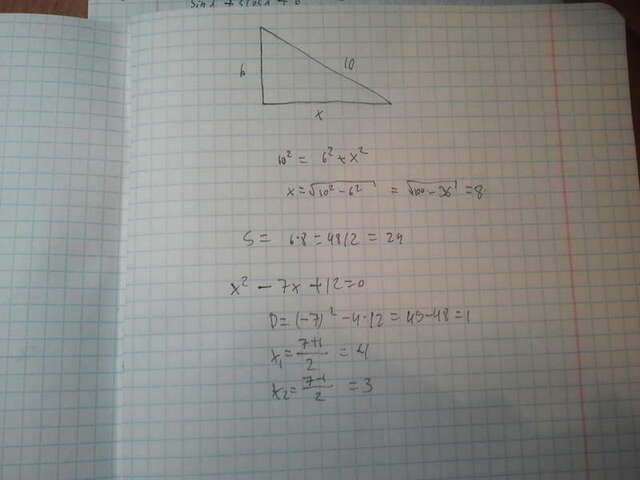 6
10
x
10² = 6² + x²
x = √10² - 6² = √100 - 36 = 8
S = 6·8 = 48/2 = 24
x² - 7x + 12 = 0
D = (-7)² - 4·12 = 49 - 48 = 1
x₁ = 7+1/2 = 4
x₂ = 7-1/2 = 3